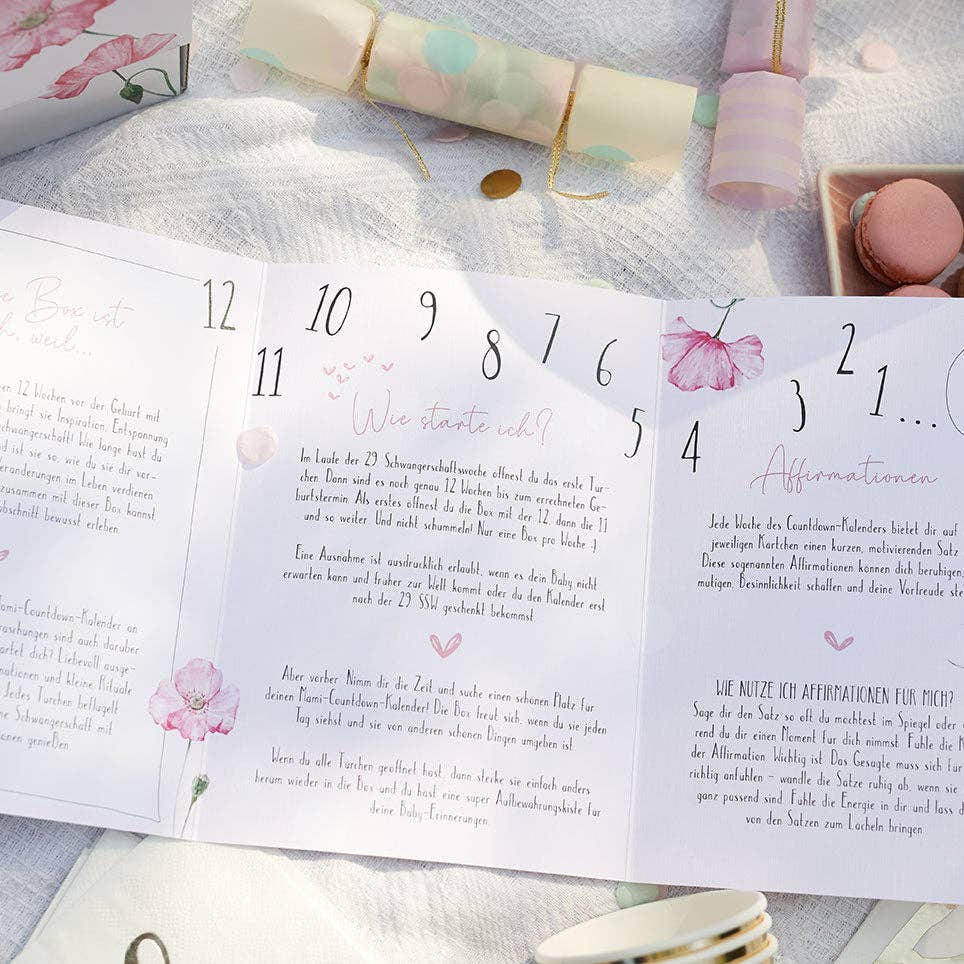 Box ist
weil...
12 Wochen vor der Geburt mit
bringt sie Inspiration, Entspannung
Wie lange hast du
ist sie so, wie du sie dir vor-
im Leben verdienen
zusammen mit dieser Box kannst
bewusst erleben.
Mami-Countdown-Kalender an
sind auch darüber
dich? Liebevoll ausge-
und kleine Rituale
Jedes Türchen beflügelt
Schwangerschaft mit
genießen
12
11
10
9
8
7
6
5
4
3
2
1...
Wie starte ich?
Im Laufe der 29 Schwangerschaftswoche öffnest du das erste Tür-
chen. Dann sind es noch genau 12 Wochen bis zum errechneten Ge-
burtstermin. Als erstes öffnest du die Box mit der 12, dann die 11
und so weiter. Und nicht schummeln! Nur eine Box pro Woche ;)
Eine Ausnahme ist ausdrücklich erlaubt, wenn es dein Baby nicht
erwarten kann und früher zur Welt kommt oder du den Kalender erst
nach der 29 SSW geschenkt bekommst.
Aber vorher: Nimm dir die Zeit und suche einen schönen Platz für
deinen Mami-Countdown-Kalender! Die Box freut sich, wenn du sie jeden
Tag siehst und sie von anderen schönen Dingen umgeben ist.
Wenn du alle Türchen geöffnet hast, dann stecke sie einfach anders
herum wieder in die Box und du hast eine super Aufbewahrungskiste für
deine Baby-Erinnerungen.
Affirmationen
Jede Woche des Countdown-Kalenders bietet dir auf
jeweiligen Kärtchen einen kurzen, motivierenden Satz
Diese sogenannten Affirmationen können dich beruhigen,
mutigen, Besinnlichkeit schaffen und deine Vorfreude
WIE NUTZE ICH AFFIRMATIONEN FÜR MICH?
Sage dir den Satz so oft du möchtest im Spiegel oder
rend du dir einen Moment für dich nimmst. Fühle die
der Affirmation. Wichtig ist: Das Gesagte muss sich für
richtig anfühlen – wandle die Sätze ruhig ab, wenn sie
ganz passend sind. Fühle die Energie in dir und lass
von den Sätzen zum Lächeln bringen